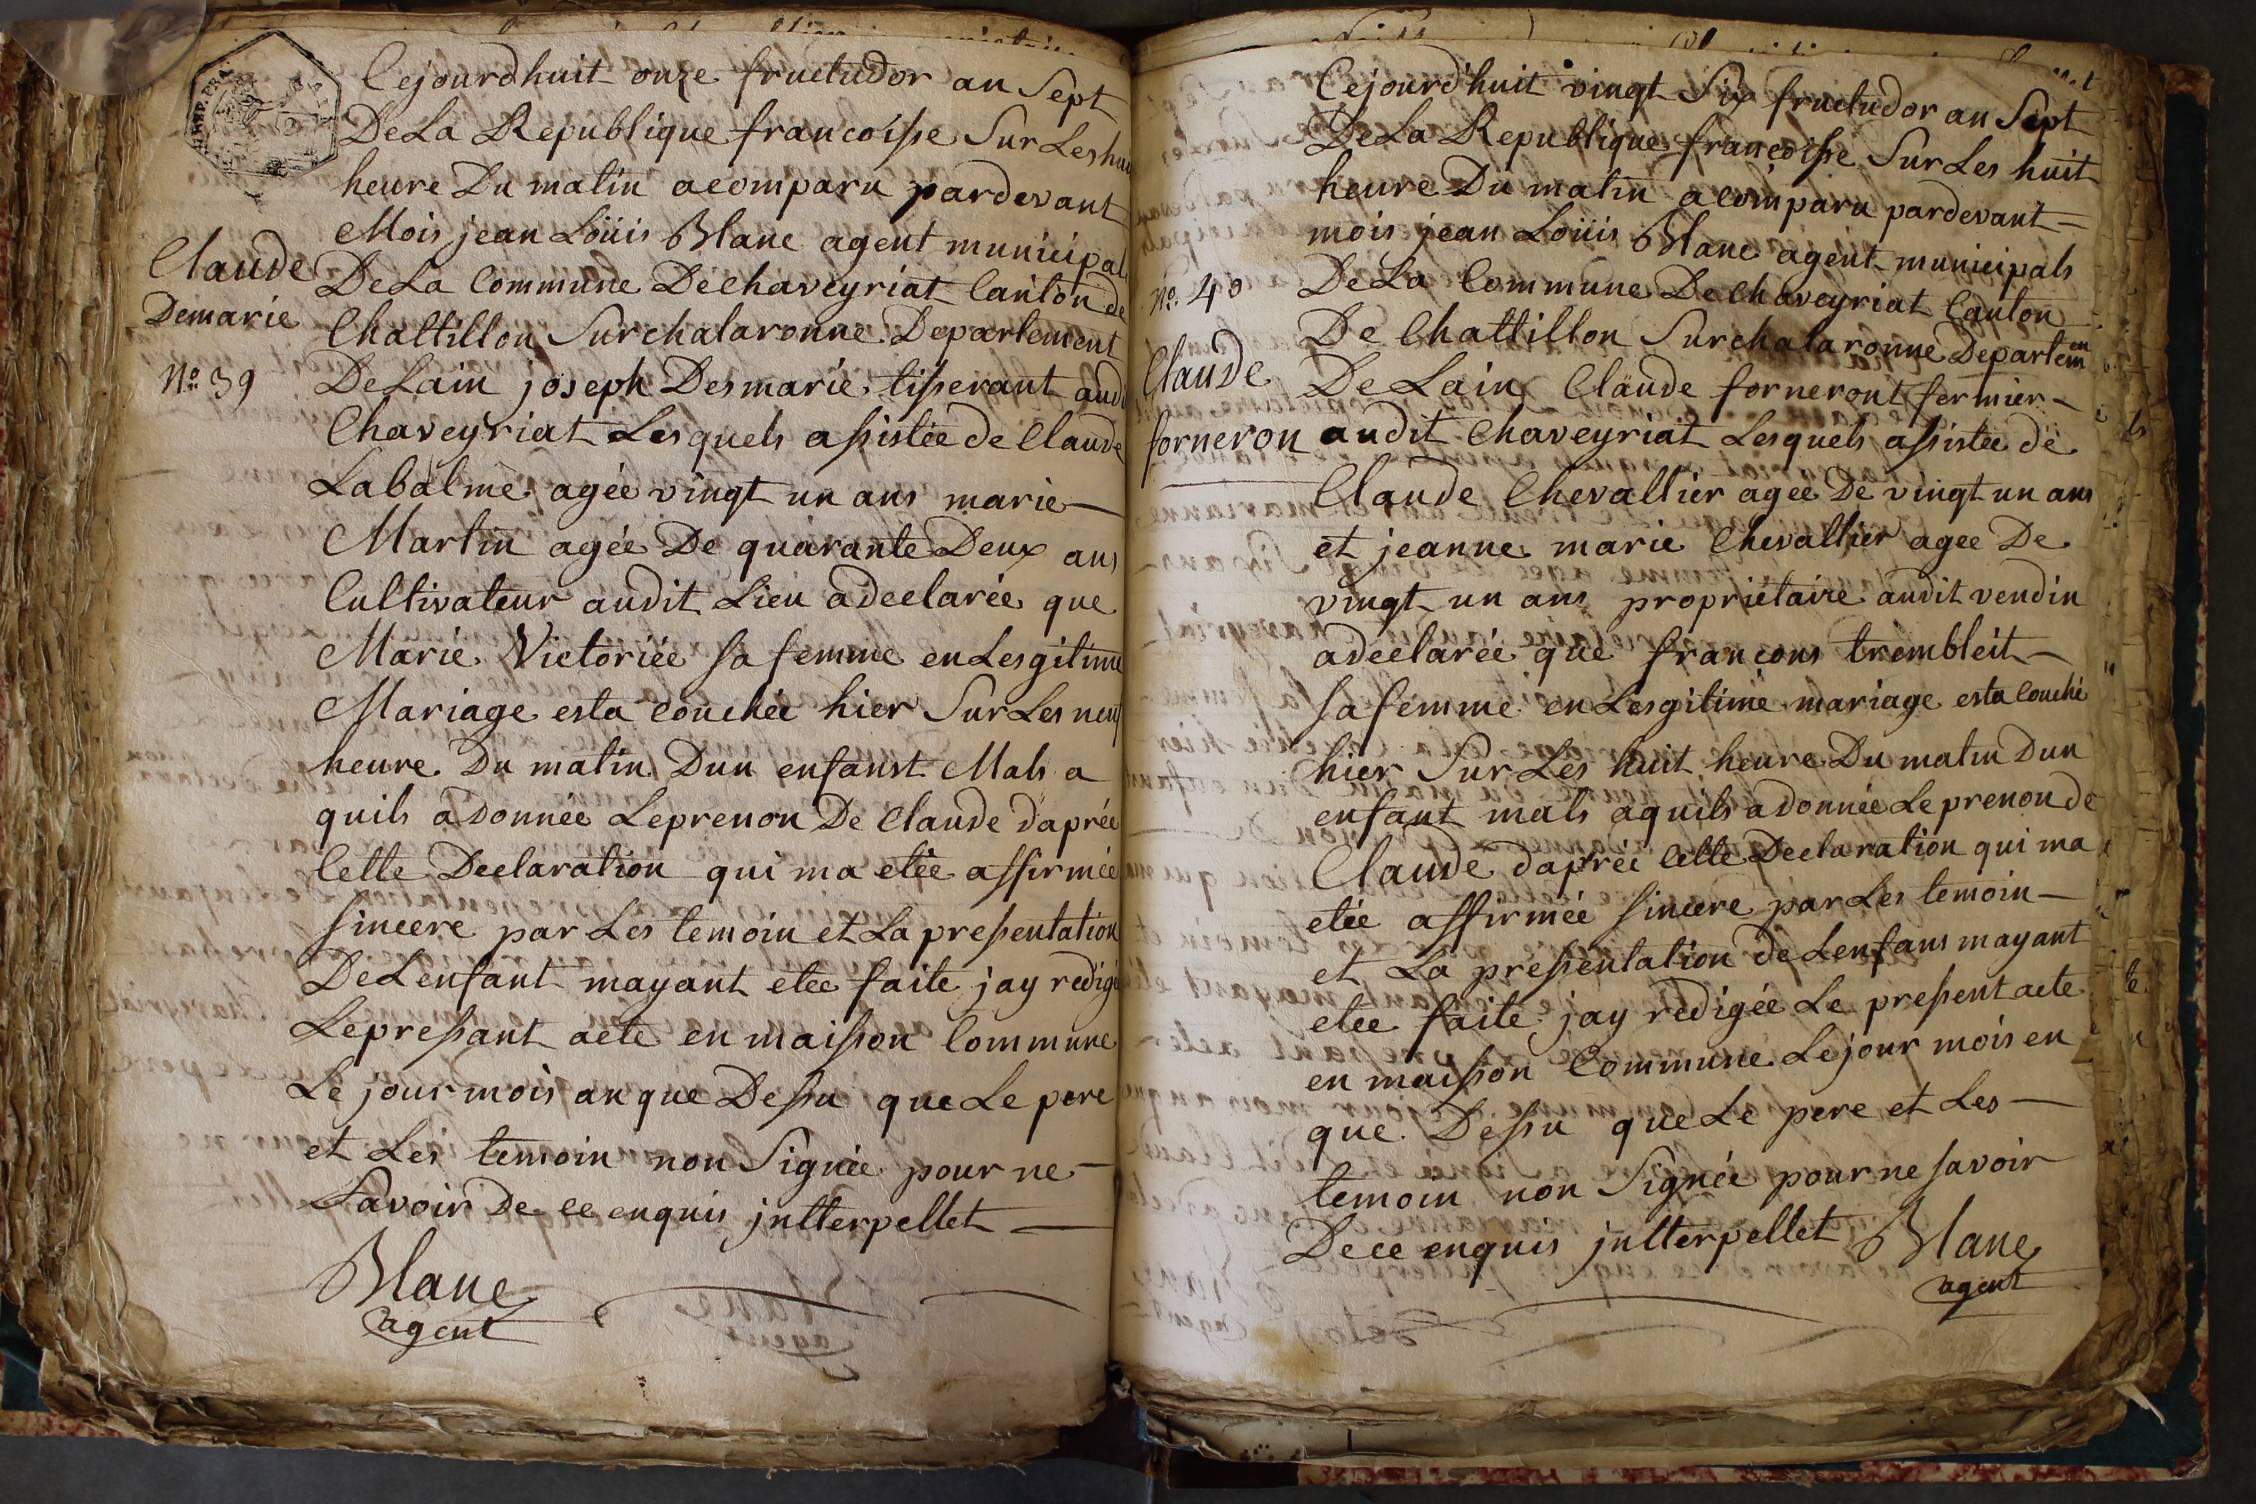 Cejourdhuit onze fructudor an Sept
De La Republique francoisse Sur Les
heure Du matin acomparu pardevant
Mois jean Löüis Blanc agent municipal
De La Commune De chaveyriat Canton de
Chattillon Surchalaronne Departement
De Lain joseph Desmarie tisserant audi
Chaveyriat Lesquels assistée de Claude
Labalme agée vingt un ans marie
Martin agée De quarante Deux ans
Cultivateur audit Lieu adeclarée que
Marie Victoriée sa femme en Lesgitime
Mariage esta couchée hier Sur Les neuf
heure Du matin Dun enfanst Mals a
quils a Donnée Leprenon De Claude daprée
Cette Declaration qui ma etée affirmée
sincere par Les temoin et La pressentation
De Lenfant mayant etee faite jay redigé
Lepressant acte en maisson Commune
Le jour mois an que Dessu que Le pere
et Les temoin non Signée pour ne
Savoir De ce enquis jntterpellet
Blanc
agent
Claude
Demarie
No. 39
Cejourd'huit vingt Six fructudor an Sept
De La Republique françoisse Sur Les huit
heure Du matin acomparu pardevant
mois jean Loüis Blanc agent municipals
De La Commune De chaveyriat Canton
De Chattillon Surchalaronne Departemen
De Lain Claude forneront fermier
audit Chaveyriat Lesquels assistée de
Claude Chevallier agee De vingt un ans
et jeanne marie Chevallier agee De
vingt un ans propriétaire audit vendin
adeclarée que françons trembleit
sa femme en Lesgitime mariage esta couché
hier Sur Les huit heure Du matin Dun
enfant mals aquils adonnée Le prenon de
Claude daprée Cette Declaration qui ma
etée affirmée sincere par Les temoin
et La pressentation de Lenfans mayant
etee faite jay redigée Le pressent acte
en maisson Commune Le jour mois en
que Dessu que Le pere et Les
temoin non Signée pour ne savoir
De ce enquis jntterpellet Blanc
agent
No. 40
Claude
forneron